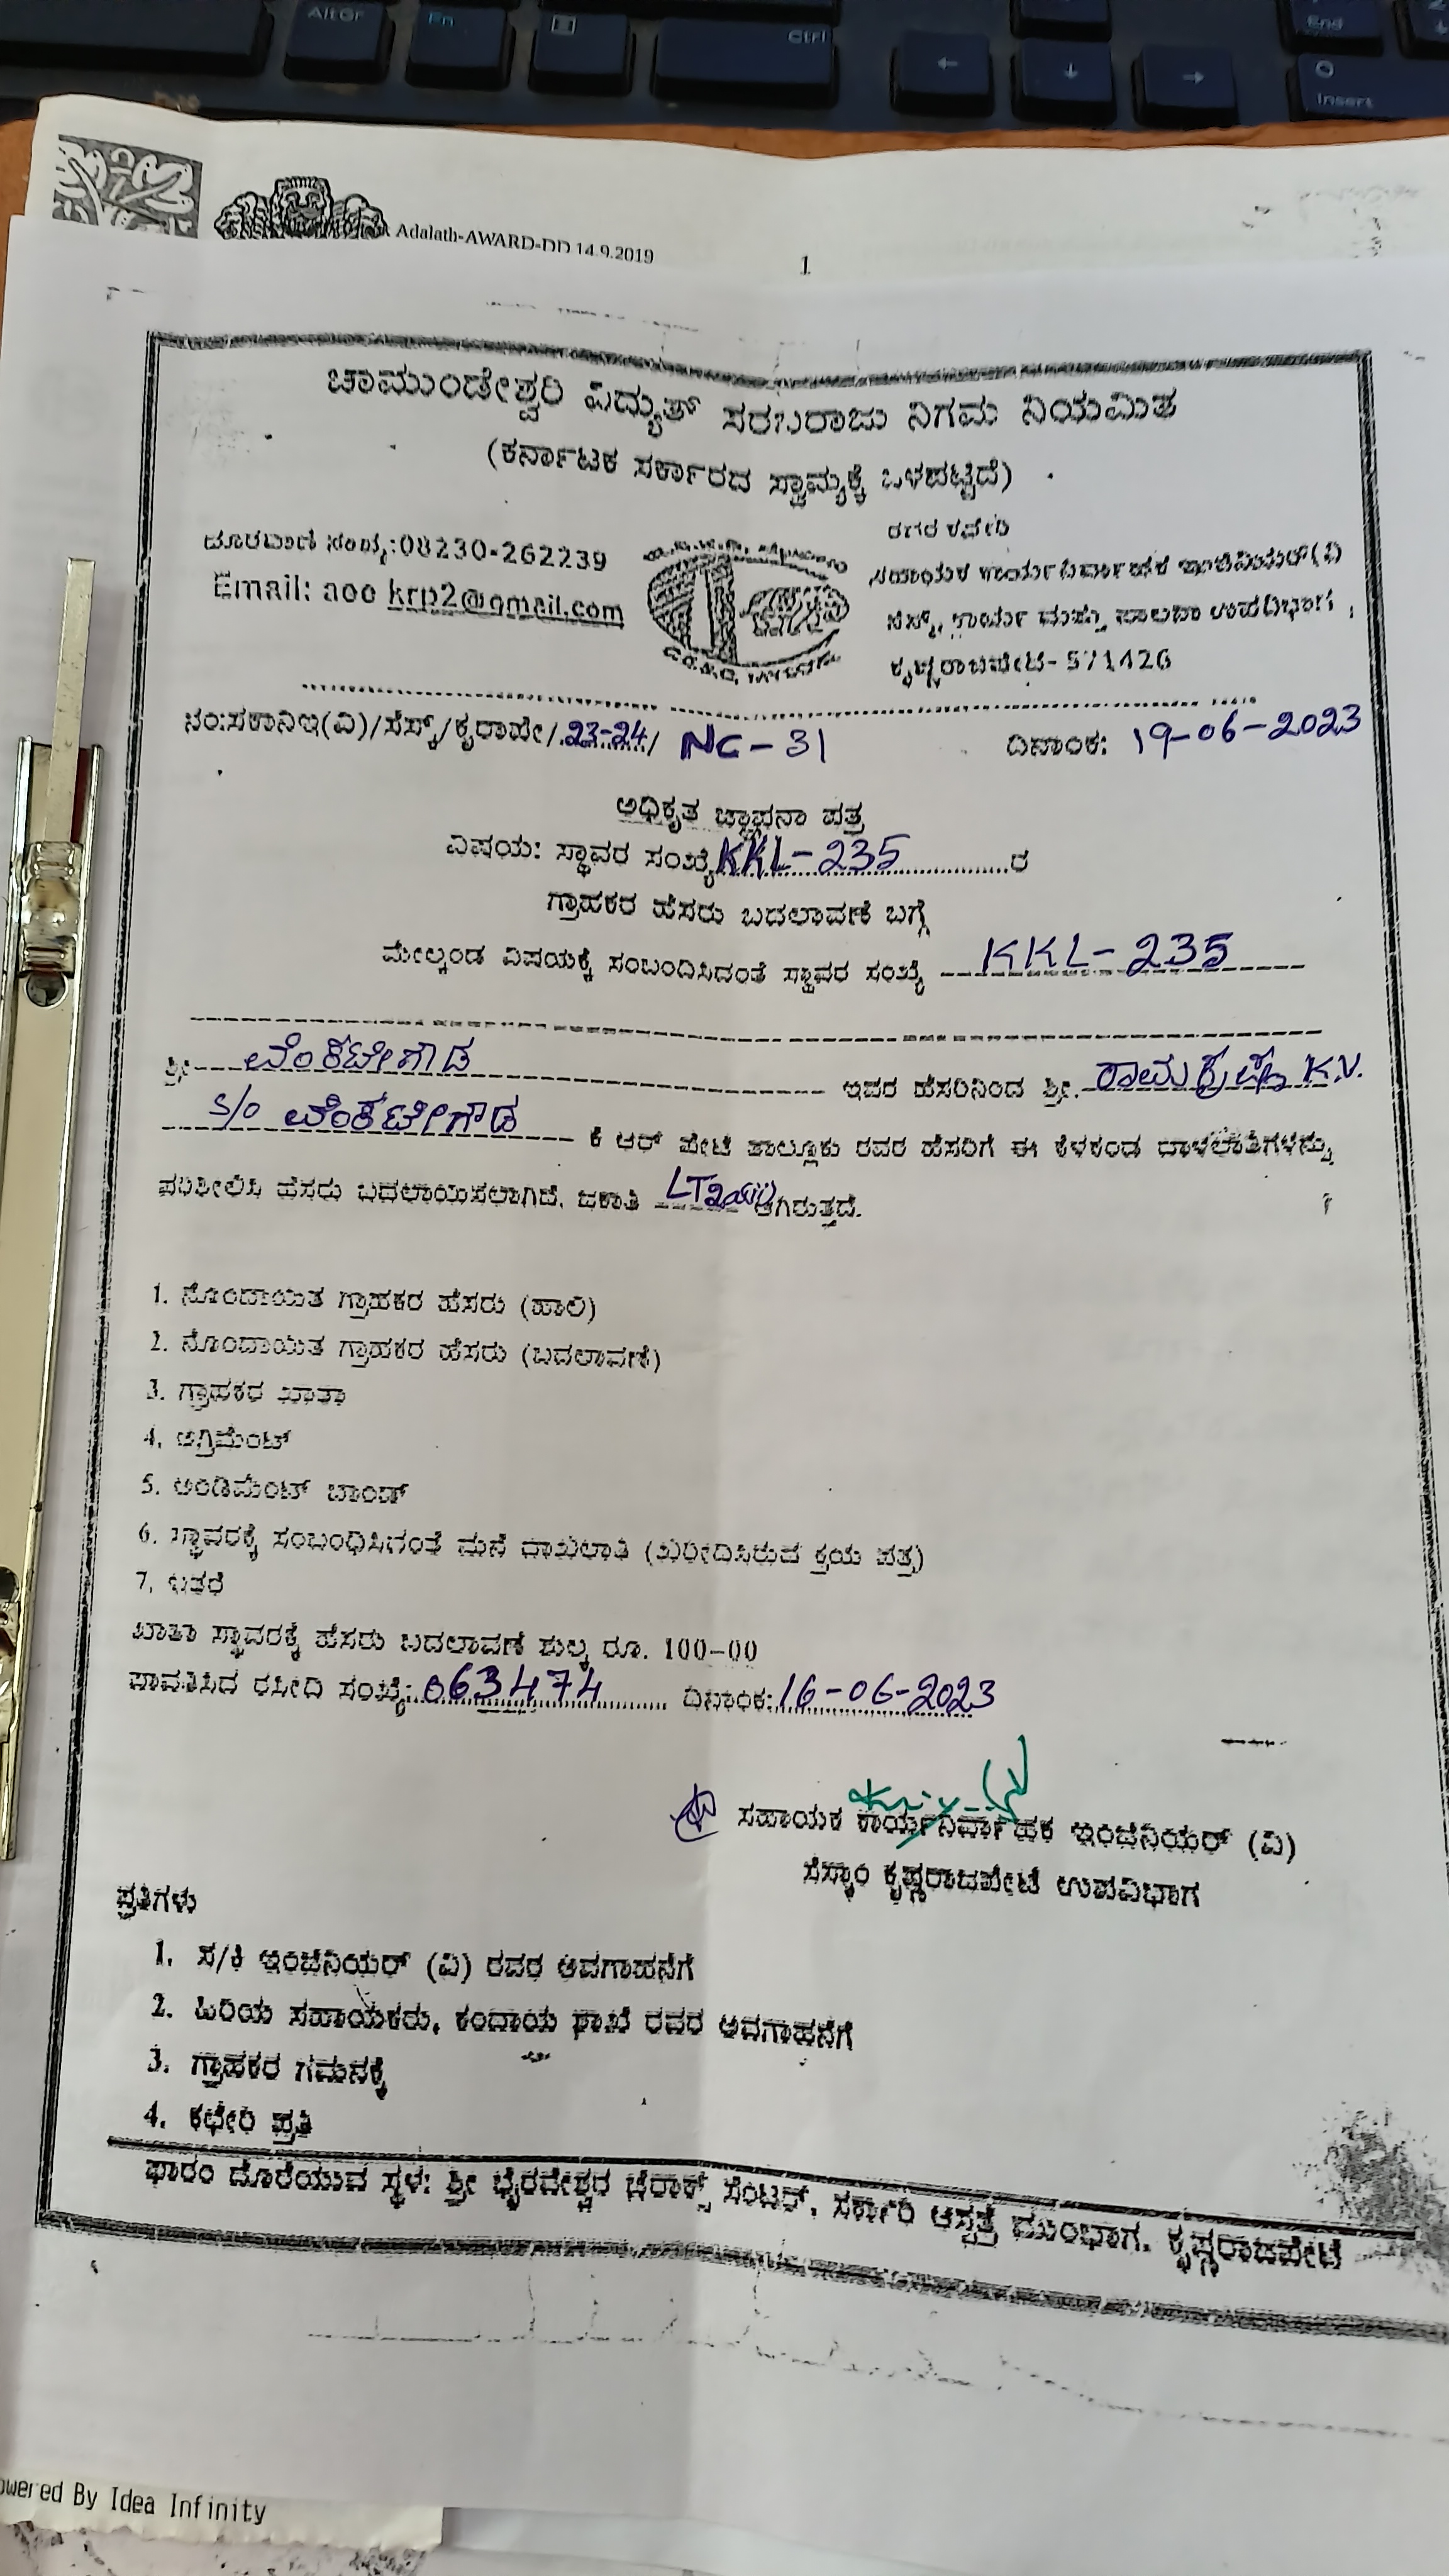 AltGr Fn Ctrl ← ↓ → End 0 Insert
Adalath-AWARD-DD 14.9.2019
1
ಚಾಮುಂಡೇಶ್ವರಿ ವಿದ್ಯುತ್ ಸರಬರಾಜು ನಿಗಮ ನಿಯಮಿತ
(ಕರ್ನಾಟಕ ಸರ್ಕಾರದ ಸ್ವಾಮ್ಯಕ್ಕೆ ಒಳಪಟ್ಟಿದೆ)
ದೂರವಾಣಿ ಸಂಖ್ಯೆ:08230-262239
Email: aoo krp2@gmail.com
ಸಹಾಯಕ ಕಾರ್ಯನಿರ್ವಾಹಕ ಇಂಜಿನಿಯರ್(ವಿ)
ಸೆಸ್ಕ್, ಕಾರ್ಯ ಮತ್ತು ಪಾಲನಾ ಉಪವಿಭಾಗ,
ಕೃಷ್ಣರಾಜಪೇಟೆ- 571426
ನಂ:ಸಕಾನಿಇ(ವಿ)/ಸೆಸ್ಕ್/ಕೃರಾಪೇ/23-24/ NC-31 ದಿನಾಂಕ: 19-06-2023
ಅಧಿಕೃತ ಜ್ಞಾಪನಾ ಪತ್ರ
ವಿಷಯ: ಸ್ಥಾವರ ಸಂಖ್ಯೆ KKL-235 ರ
ಗ್ರಾಹಕರ ಹೆಸರು ಬದಲಾವಣೆ ಬಗ್ಗೆ
ಮೇಲ್ಕಂಡ ವಿಷಯಕ್ಕೆ ಸಂಬಂದಿಸಿದಂತೆ ಸ್ಥಾವರ ಸಂಖ್ಯೆ KKL-235
ಶ್ರೀ ವೆಂಕಟೇಗೌಡ ಇವರ ಹೆಸರಿನಿಂದ ಶ್ರೀ. ರಾಮಕೃಷ್ಣ K.V.
S/o ವೆಂಕಟೇಗೌಡ ಕೆ ಆರ್ ಪೇಟೆ ತಾಲ್ಲೂಕು ರವರ ಹೆಸರಿಗೆ ಈ ಕೆಳಕಂಡ ದಾಳಲಾತಿಗಳನ್ನು
ಪರಿಶೀಲಿಸಿ ಹೆಸರು ಬದಲಾಯಿಸಲಾಗಿದೆ. ಜಕಾತಿ ಆಗಿರುತ್ತದೆ.
1. ನೊಂದಾಯಿತ ಗ್ರಾಹಕರ ಹೆಸರು (ಹಾಲಿ)
2. ನೊಂದಾಯಿತ ಗ್ರಾಹಕರ ಹೆಸರು (ಬದಲಾವಣೆ)
3. ಗ್ರಾಹಕರ ಖಾತಾ
4. ಅಗ್ರಿಮೆಂಟ್
5. ಅಂಡಿಮೆಂಟ್ ಬಾಂಡ್
6. ಸ್ಥಾವರಕ್ಕೆ ಸಂಬಂಧಿಸಿನಂತೆ ಮನೆ ದಾಖಲಾತಿ (ಖರೀದಿಸಿರುವ ಕ್ರಯ ಪತ್ರ)
7. ಇತರೆ
ಖಾತಾ ಸ್ಥಾವರಕ್ಕೆ ಹೆಸರು ಬದಲಾವಣೆ ಶುಲ್ಕ ರೂ. 100-00
ಪಾವತಿಸಿದ ರಸೀದಿ ಸಂಖ್ಯೆ: 063474 ದಿನಾಂಕ: 16-06-2023
ಸಹಾಯಕ ಕಾರ್ಯನಿರ್ವಾಹಕ ಇಂಜಿನಿಯರ್ (ವಿ)
ಸೆಸ್ಕಾಂ ಕೃಷ್ಣರಾಜಪೇಟೆ ಉಪವಿಭಾಗ
ಪ್ರತಿಗಳು
1. ಸ/ಕಿ ಇಂಜಿನಿಯರ್ (ವಿ) ರವರ ಅವಗಾಹನೆಗೆ
2. ಹಿರಿಯ ಸಹಾಯಕರು, ಕಂದಾಯ ಶಾಖೆ ರವರ ಅವಗಾಹನೆಗೆ
3. ಗ್ರಾಹಕರ ಗಮನಕ್ಕೆ
4. ಕಛೇರಿ ಪ್ರತಿ
ಫಾರಂ ದೊರೆಯುವ ಸ್ಥಳ: ಶ್ರೀ ಭೈರವೇಶ್ವರ ಜೆರಾಕ್ಸ್ ಸೆಂಟರ್, ಸರ್ಕಾರಿ ಆಸ್ಪತ್ರೆ ಮುಂಭಾಗ, ಕೃಷ್ಣರಾಜಪೇಟೆ
owered By Idea Infinity